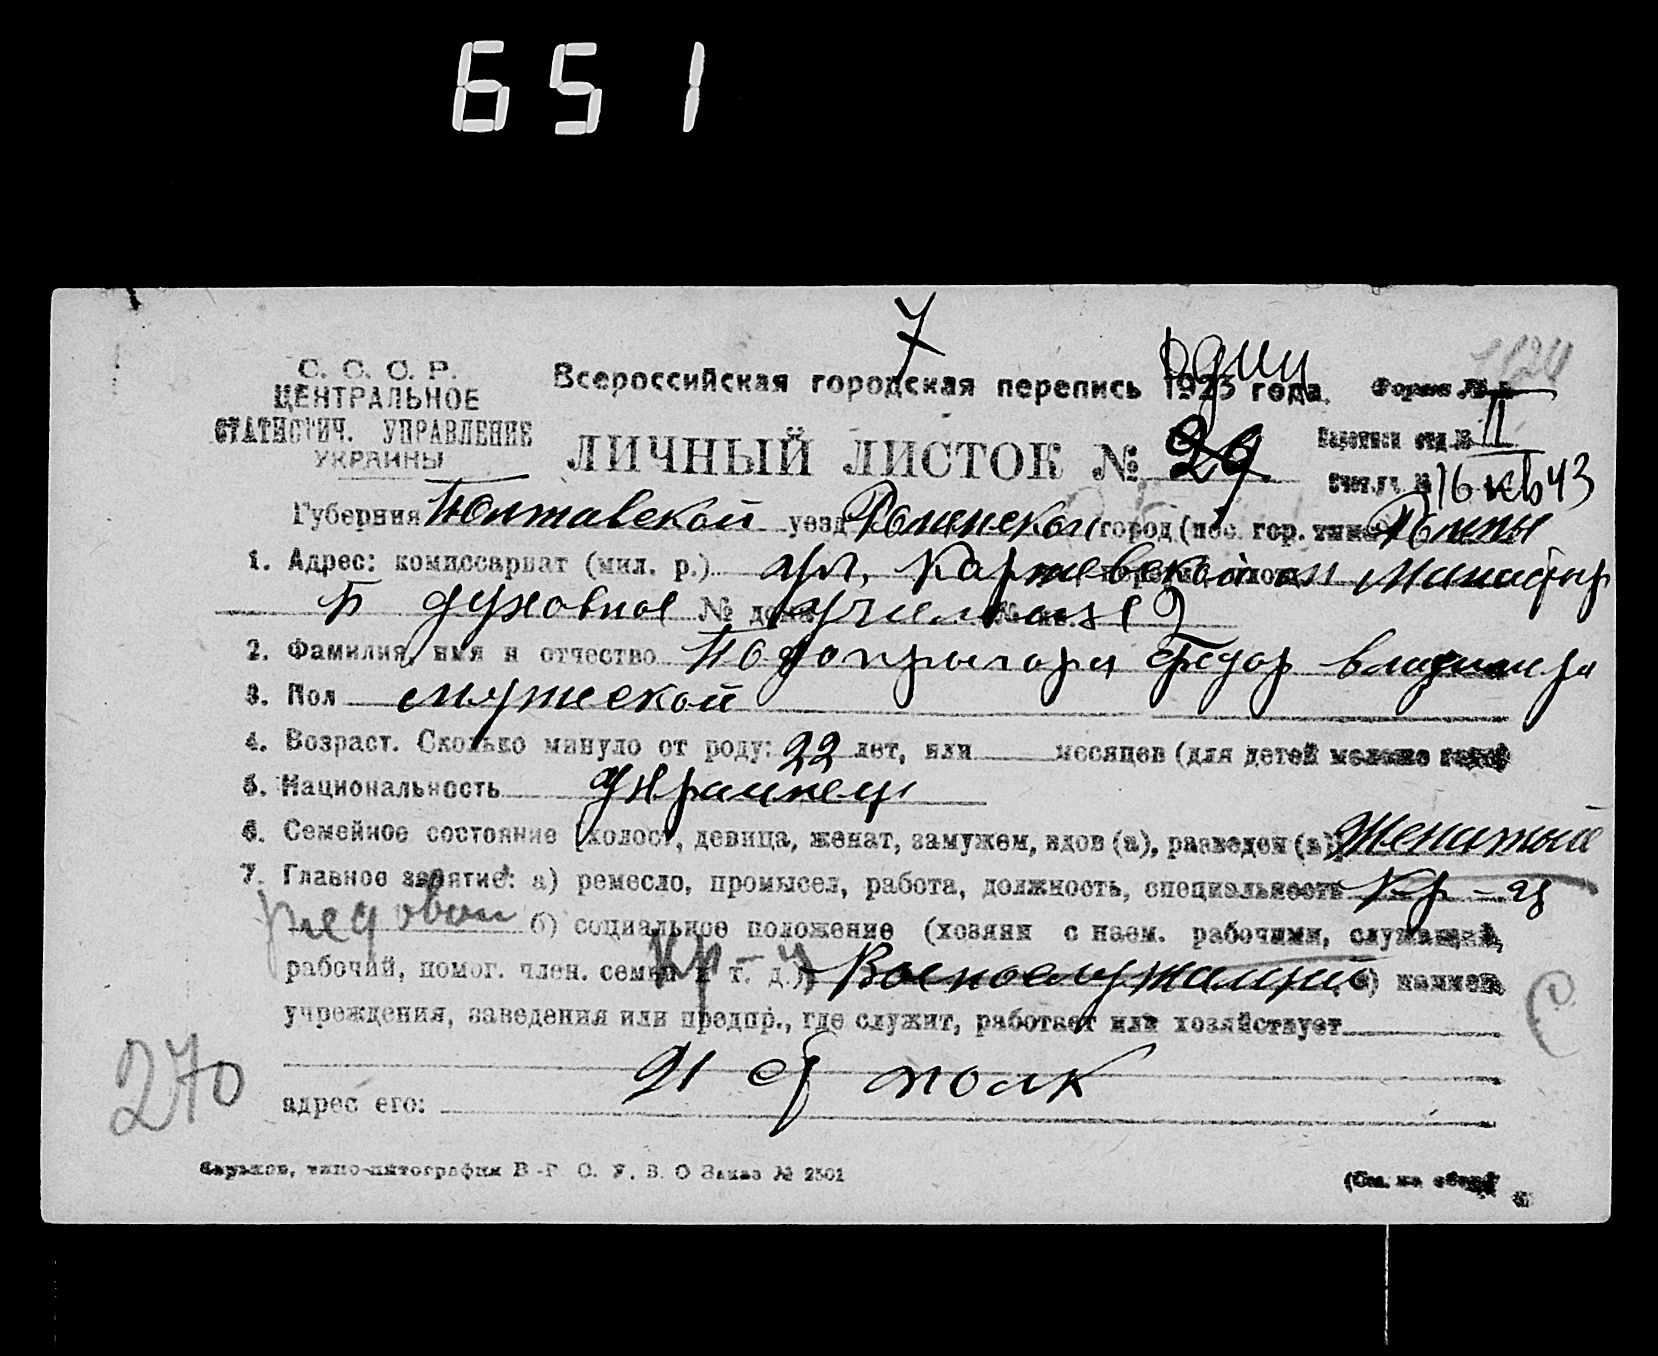 651
7
С. С. С. Р.
ЦЕНТРАЛЬНОЕ
СТАТИСТИЧ. УПРАВЛЕНИЕ
УКРАИНЫ
Всероссийская городская перепись 1923 года.
Форма №
ЛИЧНЫЙ ЛИСТОК № 29
отд. № II
16 кв 43
Губерния Полтавской уезд Роменской город (пос. гор. типа) Ромны
1. Адрес: комиссариат (мил. р.) ул,
Б духовное № дома
2. Фамилия, имя и отчество Подопригора Федор Владимир
3. Пол мужской
4. Возраст. Сколько минуло от роду: 22 лет, или месяцев (для детей моложе года)
5. Национальность Украинец
6. Семейное состояние (холост, девица, женат, замужем, вдов (а), разведен (а)) Женатый
7. Главное занятие: а) ремесло, промысел, работа, должность, специальность Кр-ц
рядовой б) социальное положение (хозяин с наем. рабочими, служащий,
рабочий, помог. член. семьи и т. д.) Кр-ц Военнослужащий в) наимен.
учреждения, заведения или предпр., где служит, работает или хозяйствует
21 полк
адрес его:
270
Харьков, типо-литография В-Г С. У. В. О Заказ № 2501
(См. на обор.)